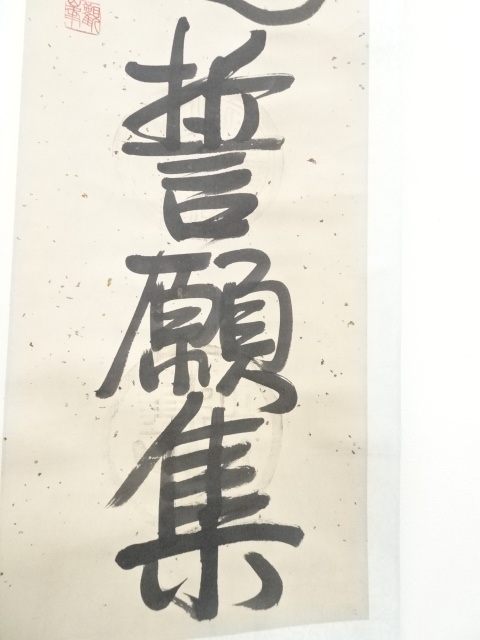 誓願集